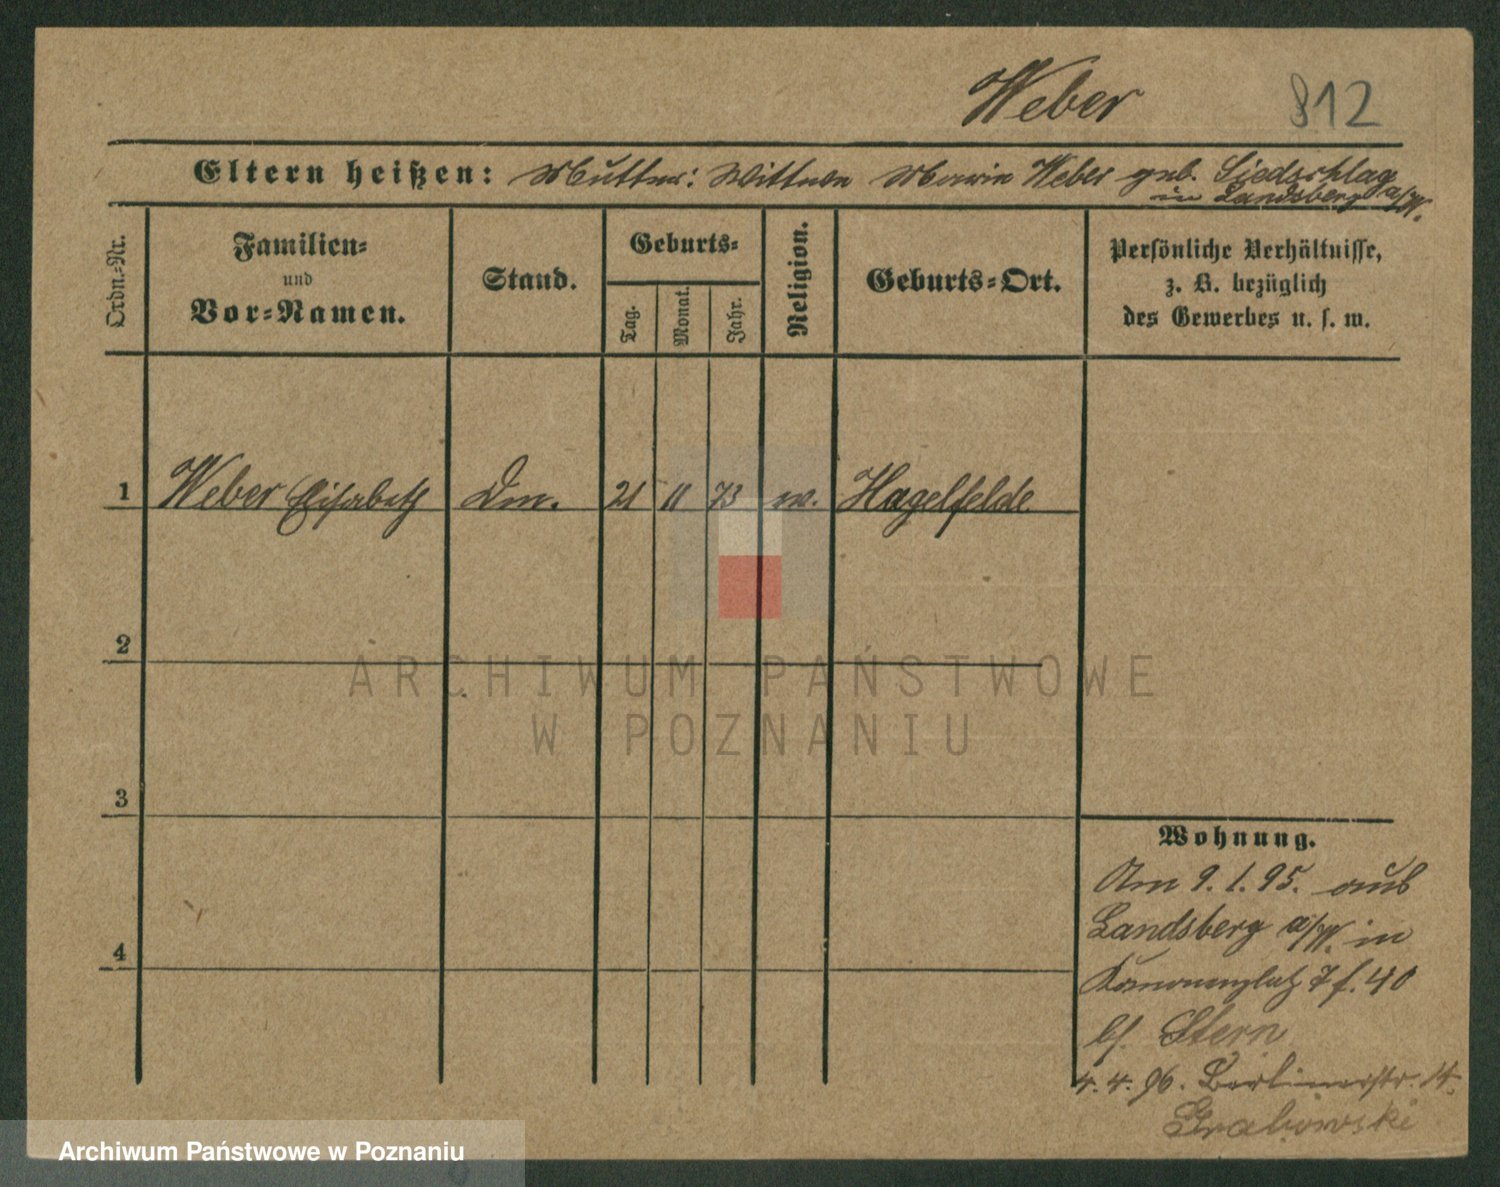 Weber 812
Eltern heißen: Mutter: Wittwe Marie Weber geb. Liedschlag
in Landsberg a/W.
Ordn.-Nr.
Familien-
und
Vor-Namen.
Stand.
Geburts-
Tag.
Monat.
Jahr.
Religion.
Geburts-Ort.
Persönliche Verhältnisse,
z. B. bezüglich
des Gewerbes u. s. w.
1 Weber Elisabeth Dm. 21 11 73 ev. Hagelfelde
2
3
4
Wohnung.
Am 9.1.95. aus
Landsberg a/W. in
Kanonenplatz 7 f. 40
bf. Stern
4.4.96. Berlinerstr. 14.
Grabowski
ARCHIWUM PAŃSTWOWE
W POZNANIU
Archiwum Państwowe w Poznaniu